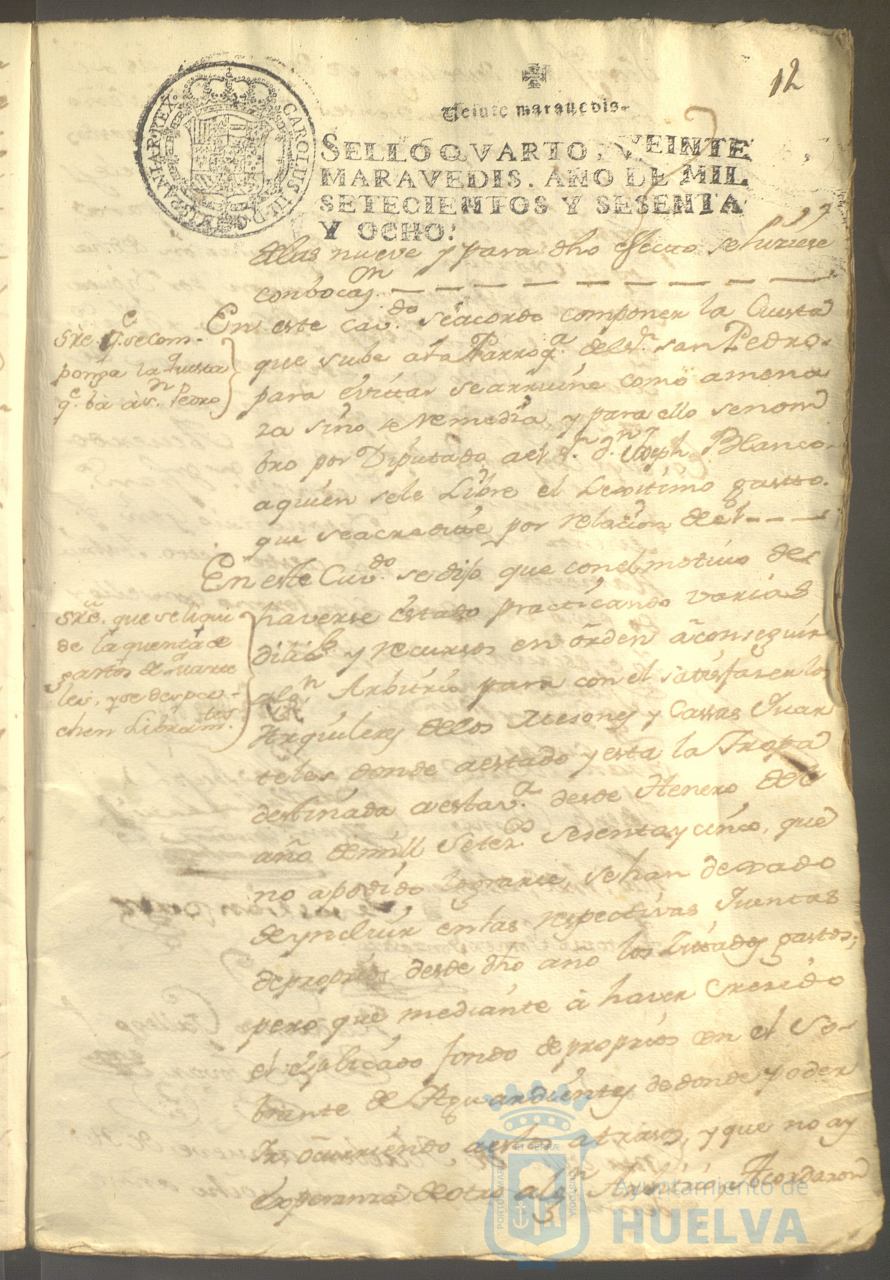 12
Veinte maravedis.
SELLO QVARTO, VEINTE
MARAVEDIS, AÑO DE MIL
SETECIENTOS Y SESENTA
Y OCHO:
CAROLUS III D G HISPANIAR REX
a las nueve y para dho efecto se hiziese
conbocaz.n
En este cav.do se acordo componer la Cuesta
que sube a la Parroq.a de el S.r san Pedro
para evitar se arruine como amena
za sino se remedia, y para ello se nom
bro por Diputado a el S.r d.n Joseph Blanco
a quien se le Libre el Lexitimo gasto
que se acredite por relacion de el
Sre q.e se com-
ponga la questa
q.e ba à S.n Pedro
En este Cav.do se dijo que con el motivo de
haverse estado practicando varias
dilig.s y recursos en orden a conseguir
alg.n Arbitrio para con el satisfaser los
Arquileres de los Mesones y Casas Quar
teles donde a estado y esta la Tropa
destinada a esta v.a desde Henero de el
año de mill Setez.s sesenta y cinco, que
no a podido lograrse se han dexado
de yncluir en las respectivas Quentas
de propios desde dho año los zitados gastos;
pero que mediante à haver Crecido
el explicado fondo de propios con el So-
brante de Aguardientes de donde poder
ir ocurriendo a estos atrasos, y que no ay
Esperanza de otro alg.n Arbitrio Acordaron
Sre. que se liqui
de la quenta de
gastos de Quarte
les, y se despa-
chen Libram.tos
Ayuntamiento de
HUELVA